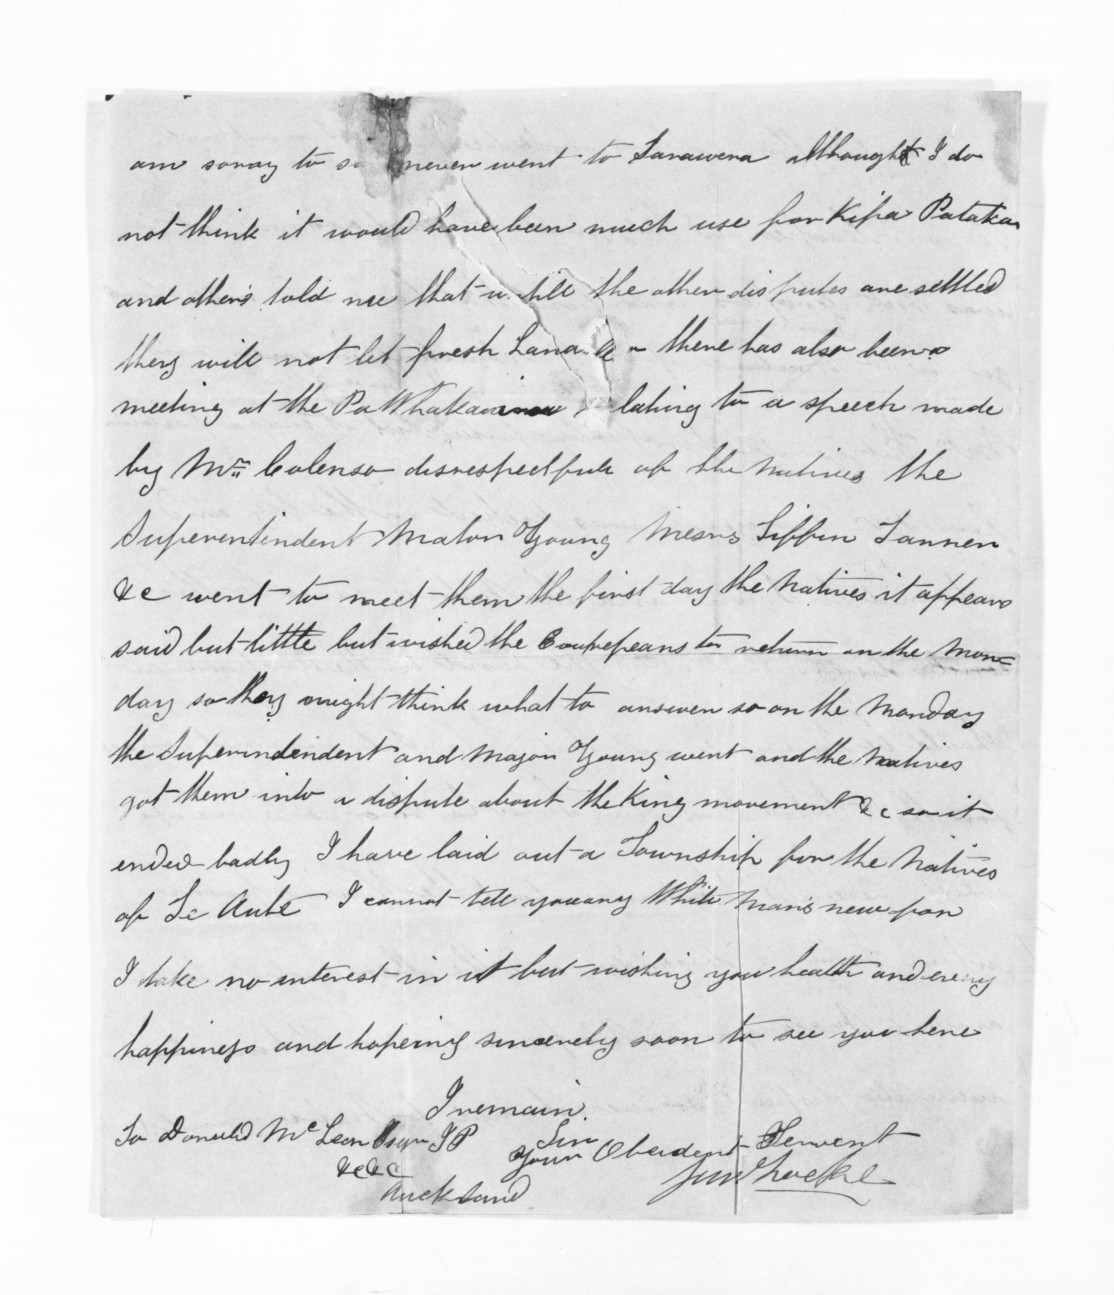 am soray to s never went to Tarawera althought I do
not think it would have been much use for Kipa Patakar
and others told me that untill the other disputes are settled
they will not let fresh Land there has also been a
meeting at the Pa Whakawino lating to a speech made
by Mr. Colenso disrespectfull of the Natives the
Superentindent Malor Young Mesrs Tiffin Tanner
&c went to meet them the first day the Natives it appears
said but little but wished the Eourepeans to return on the Mon=
day so they might think what to answer so on the Monday
the Superindendent and Major Young went and the Natives
got them into a dispute about the King movement &c so it
ended badly I have laid out a Township for the Natives
of Te Aute I cannot tell you any White Man's new for
I take no interest in it but wishing you health and every
happiness and hopeing sincerely soon to see you here
I remain
Sir
To Donald McLean Esqr JP
Your Obedent Servent
&c&c
Auckland
Locke